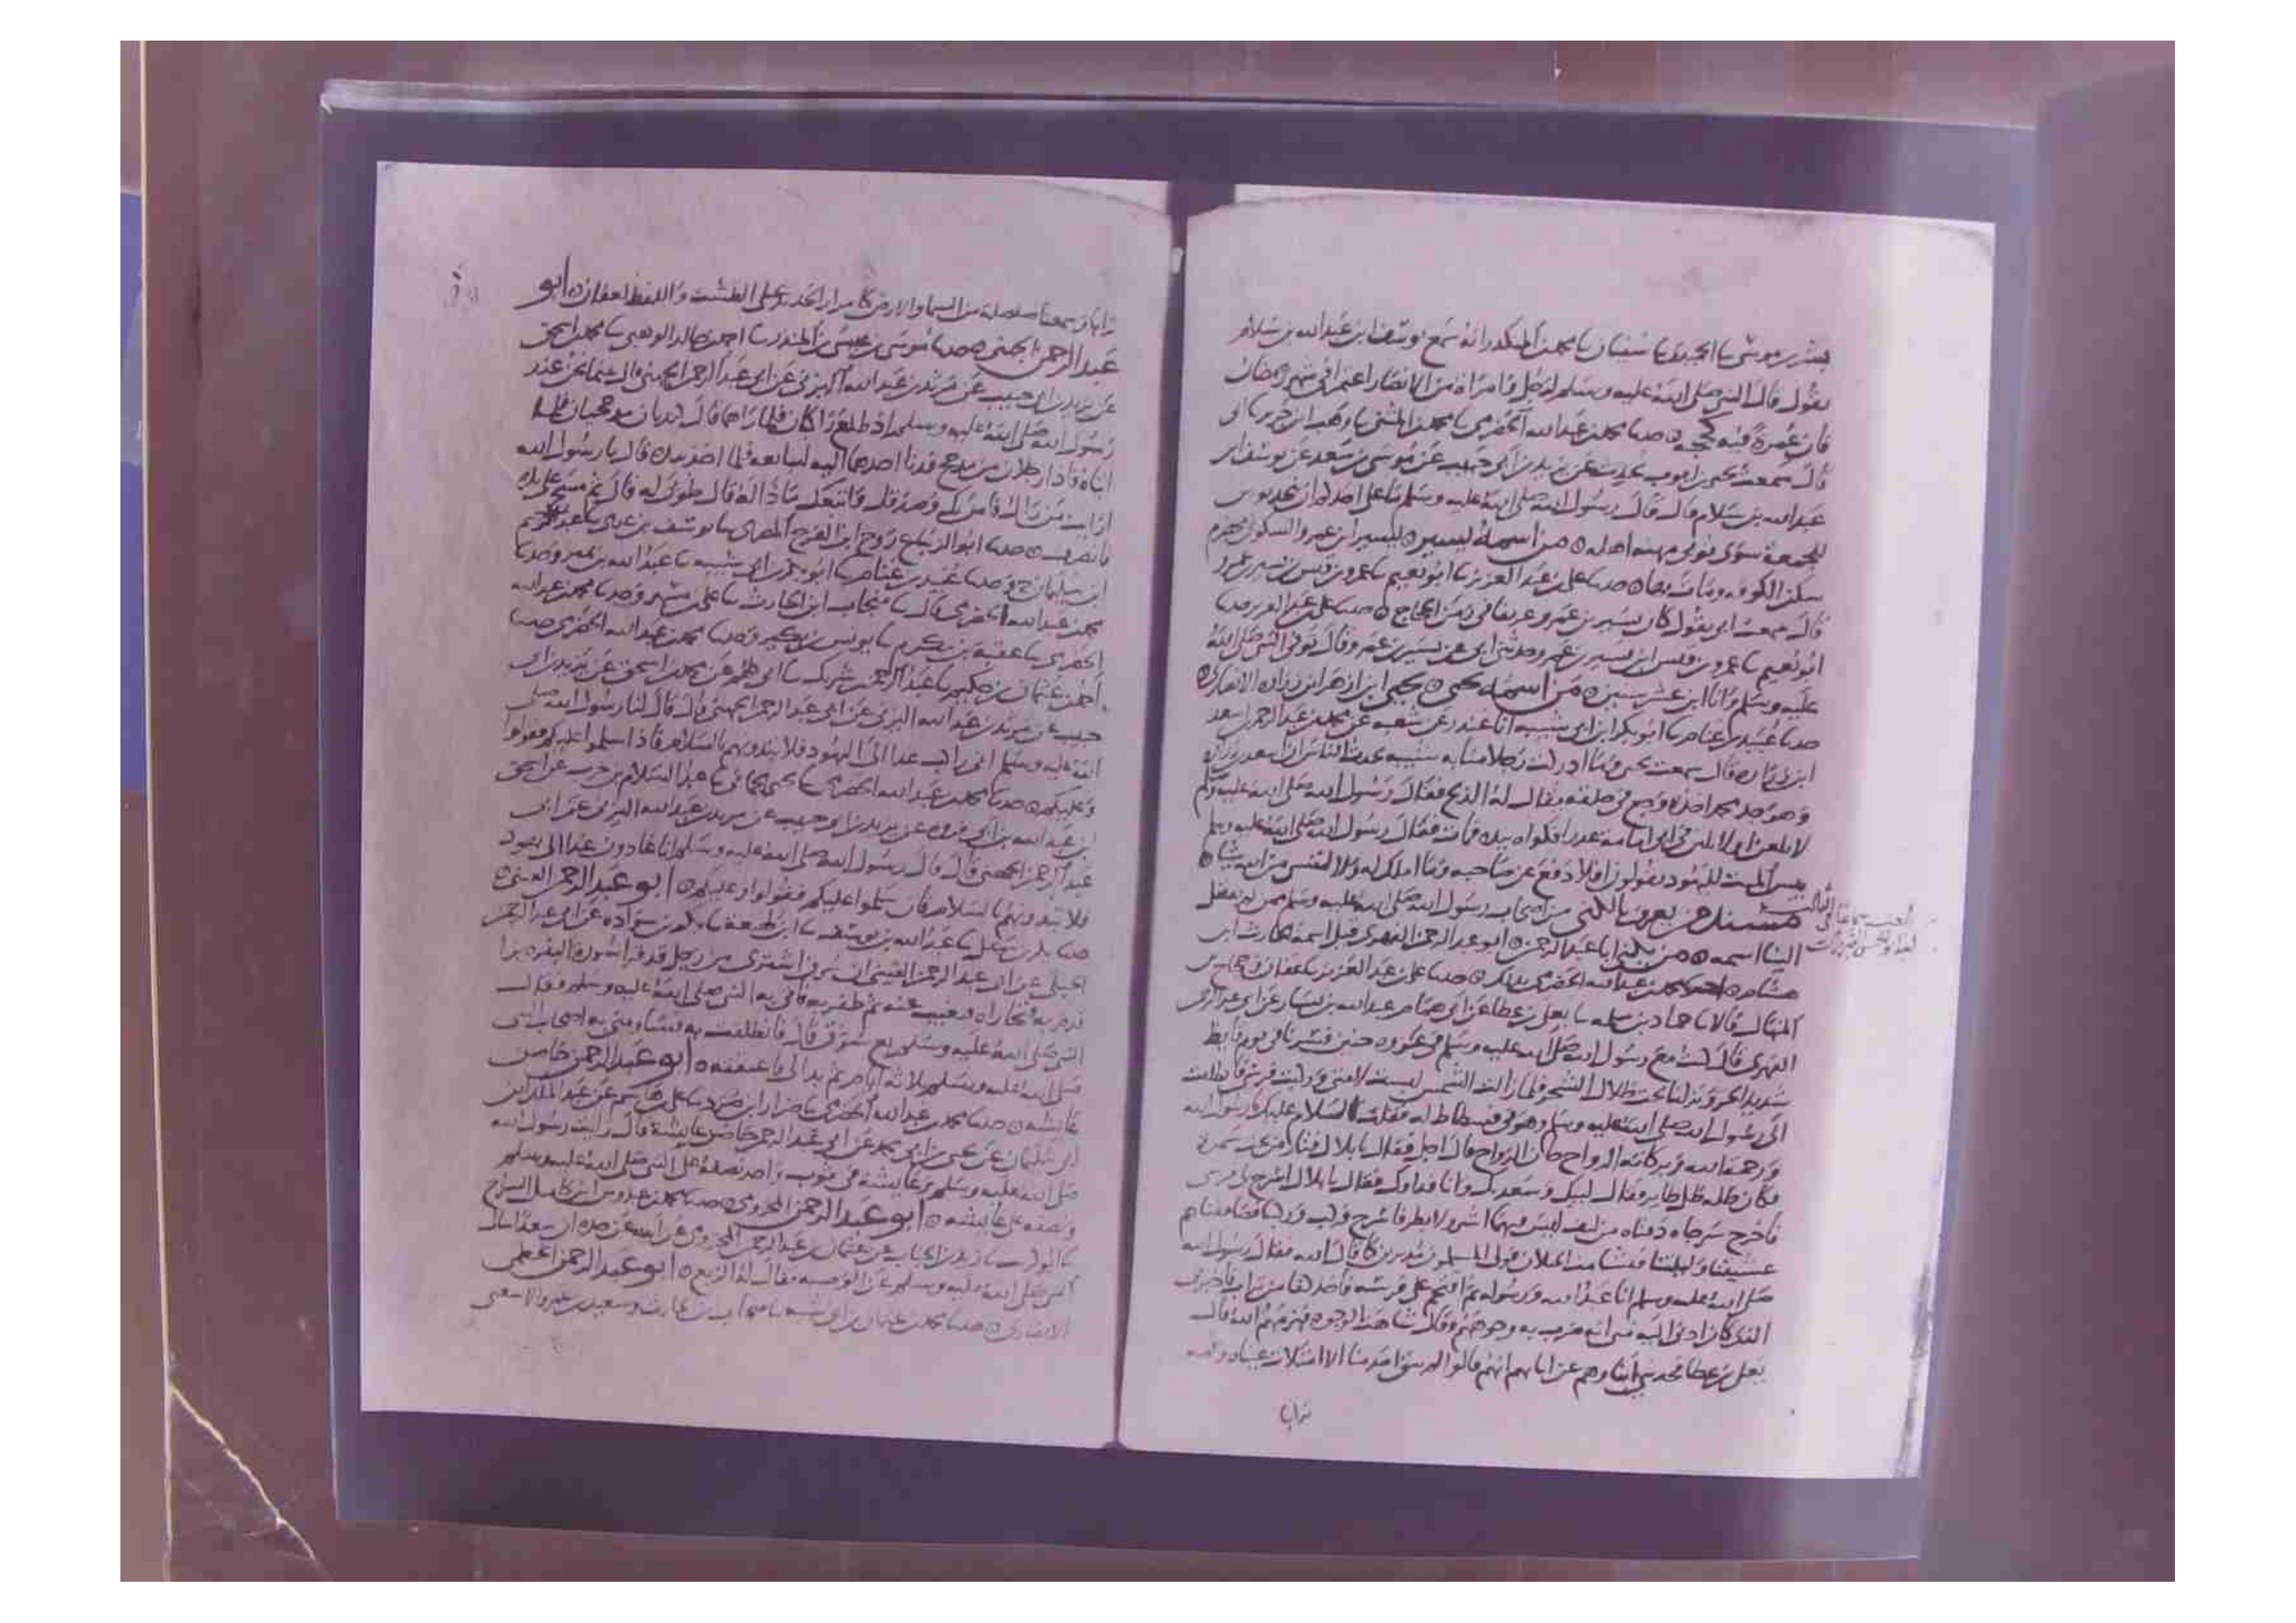 بشر بن موسى ثنا الحميدي ثنا سفيان ثنا محمد بن المنكدر انه سمع يوسف ابن عبد الله بن سلام
يقول قال النبي صلى الله عليه وسلم لرجل وامراة من الانصار اعتمرا في شهر رمضان
فان عمرة فيه كحجه حدثنا محمد بن عبد الله الحضرمي ثنا محمد بن المثنى ثنا وهب ابن جرير ثنا ابي
قال سمعت يحيى بن ايوب يحدث عن يزيد بن ابي حبيب عن موسى بن سعد عن يوسف ابن
عبد الله بن سلام قال قال رسول الله صلى الله عليه وسلم ما على احدكم ان يتخذ ثوبين
للجمعة سوى ثوبي مهنه اهله من اسمه يسير يسير ابن عمرو السكوني مخضرم
سكن الكوفه ومات بها حدثنا علي بن عبد العزيز ثنا ابو نعيم ثنا عمرو بن قيس بن يسير بن عمرو
قال سمعت ابي يقول كان يسير بن عمرو عريفا في زمن الحجاج حدثنا علي بن عبد العزيز حدثنا
ابو نعيم ثنا عمرو بن قيس ابن يسير بن عمرو حدثني ابي عن يسير بن عمرو قال توفي النبي صلى الله
عليه وسلم وانا ابن عشر سنين من اسمه يحيى يحيى ابن ازهر ابن زراره الانصاري
حدثنا عبيد بن غنام ثنا ابو بكر ابن ابي شيبه انا غندر عن شعبه عن محمد بن عبد الرحمن بن اسعد
ابن زراره قال سمعت يحيى وما ادركت رجلا منا به شبيه يحدث الناس ان اسعد بن زراره
وهو جد محمد اخذه وجع في حلقه يقال له الذبح فقال رسول الله صلى الله عليه وسلم
لابلغن او لابلين في ابي امامه عذرا فكواه بيده فمات فقال رسول الله صلى الله عليه وسلم
بيس الميت لليهود يقولون افلا دفع عن صاحبه وما املك له ولا لنفسي من الله شيا
مسند من يعرف بالكنى من اصحاب رسول الله صلى الله عليه وسلم ممن لم ينقل
الينا اسمه من يكنى ابا عبد الرحمن ابو عبد الرحمن الفهري قيل اسمه الحارث ابن
هشام محمد بن عبد الله الحضرمي بذلك حدثنا علي بن عبد العزيز ثنا عفان وحجاج بن
المنهال قالا ثنا حماد بن سلمه ثنا يعلى بن عطا عن ابي همام عبد الله بن يسار عن ابي عبد الرحمن
الفهري قال كنت مع رسول الله صلى الله عليه وسلم في غزوه حنين فسرنا في يوم قايظ
شديد الحر ونزلنا تحت ظلال الشجر فلما زالت الشمس لبست لامتي وركبت فرسي فانطلقت
الى رسول الله صلى الله عليه وسلم وهو في فسطاط له فقلت السلام عليك يا رسول الله
ورحمة الله وبركاته الرواح حان الرواح قال اجل فقال يا بلال فثار من تحت سمرة
فكان ظله ظل طاير فقال لبيك وسعديك وانا فداوك فقال يا بلال اسرج لي فرسي
فاخرج سرجا دفتاه من ليف ليس فيهما اشر ولا بطر فاسرج فركب وركبنا فصاففناهم
عشيتنا وليلتنا فتشامت الخيلان فولى المسلمون مدبرين كما قال الله فقال رسول الله
صلى الله عليه وسلم انا عبد الله ورسوله ثم اقتحم على فرسه فاخذ كفا من تراب فاخبرني
الذي كان ادنى اليه مني انه ضرب به وجوههم وقال شاهت الوجوه فهزمهم الله قال
يعلى بن عطا فحدثني ابناوهم عن ابايهم انهم قالوا لم يبق منا الا امتلات عيناه وفمه
ترابا
ترابا وسمعنا صلصلة من السما والارض كامرار الحديد على الطشت واللفظ لعفان ابو
عبد الرحمن الجهني حدثنا موسى بن عيسى بن المنذر ثنا احمد بن خالد الوهبي ثنا محمد بن اسحق
عن يزيد بن ابي حبيب عن مرثد بن عبد الله اليزني عن ابي عبد الرحمن الجهني قال بينما نحن عند
رسول الله صلى الله عليه وسلم اذ طلع راكبان فلما راهما قال كنديان مذحجيان فلما
اتياه فاذا رجلان من مذحج فدنا احدهما اليه ليبايعه فلما اخذ بيده قال يا رسول الله
ارايت من راك فامن بك وصدقك واتبعك ماذا له قال طوبى له قال ثم مسح على يده
فانصرف حدثنا ابو الزنباع روح ابن الفرج المصري ثنا يوسف بن عدي ثنا عبد الرحيم
ابن سليمان ح وحدثنا عبيد بن غنام ثنا ابو بكر بن ابي شيبه ثنا عبد الله بن نمير وحدثنا
محمد بن عبد الله الحضرمي قال ثنا منجاب ابن الحارث ثنا علي بن مسهر وحدثنا محمد بن عبد الله
الحضرمي ثنا عقبة بن مكرم ثنا يونس بن بكير وحدثنا محمد بن عبد الله الحضرمي حدثنا
احمد بن عثمان بن حكيم ثنا عبد الرحمن بن شريك ثنا ابي كلهم عن محمد بن اسحق عن يزيد بن ابي
حبيب عن مرثد بن عبد الله اليزني عن ابي عبد الرحمن الجهني قال قال لنا رسول الله صلى
الله عليه وسلم اني راكب غدا الى اليهود فلا تبدوهم بالسلام فاذا سلموا عليكم فقولوا
وعليكم حدثنا محمد بن عبد الله الحضرمي ثنا يحيى الحماني ثنا عبد السلام بن حرب عن اسحق
ابن عبد الله بن ابي فروه عن يزيد بن ابي حبيب عن مرثد بن عبد الله اليزني عن ابي
عبد الرحمن الجهني قال قال رسول الله صلى الله عليه وسلم انا غادون غدا الى يهود
فلا تبدوهم بالسلام فان سلموا عليكم فقولوا وعليكم ابو عبد الرحمن القيني
حدثنا بكر بن سهل ثنا عبد الله بن يوسف ثنا ابن لهيعة ثنا بكر بن سواده عن ابي عبد الرحمن
الحبلي عن ابي عبد الرحمن القيني ان سرق اشترى من رجل قد قرا سورة البقره بزا
قدم به فتجازاه فتغيب عنه ثم ظفر به فاتى به النبي صلى الله عليه وسلم فقال
النبي صلى الله عليه وسلم بع سرق قال فانطلقت به فساومني به اصحاب النبي
صلى الله عليه وسلم ثلاثة ايام ثم بدا لي فاعتقته ابو عبد الرحمن حاضن
عايشه حدثنا محمد بن عبد الله الحضرمي ثنا ضرار ابن صرد ثنا علي بن هاشم عن عبد الملك ابن
ابي سليمان عن يحيى بن ابي محمد عن ابي عبد الرحمن حاضن عايشة قال رايت رسول الله
صلى الله عليه وسلم وعايشة في ثوب واحد نصفه على النبي صلى الله عليه وسلم
ونصفه على عايشه ابو عبد الرحمن المخزومي حدثنا محمد بن عبدوس ابن كامل السراج
ثنا ابو كريب ثنا زيد بن الحباب عن عثمان بن عبد الرحمن المخزومي عن ابيه عن جده ان سعدا سال
النبي صلى الله عليه وسلم عن الوصيه فقال له الربع ابو عبد الرحمن الخطمي
الانصاري حدثنا محمد بن عثمان بن ابي شيبه ثنا منجاب بن الحارث وسعيد بن عمرو الاشعثي